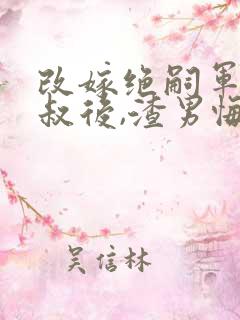 改嫁绝嗣軍
叔後,渣男悔
吴信林